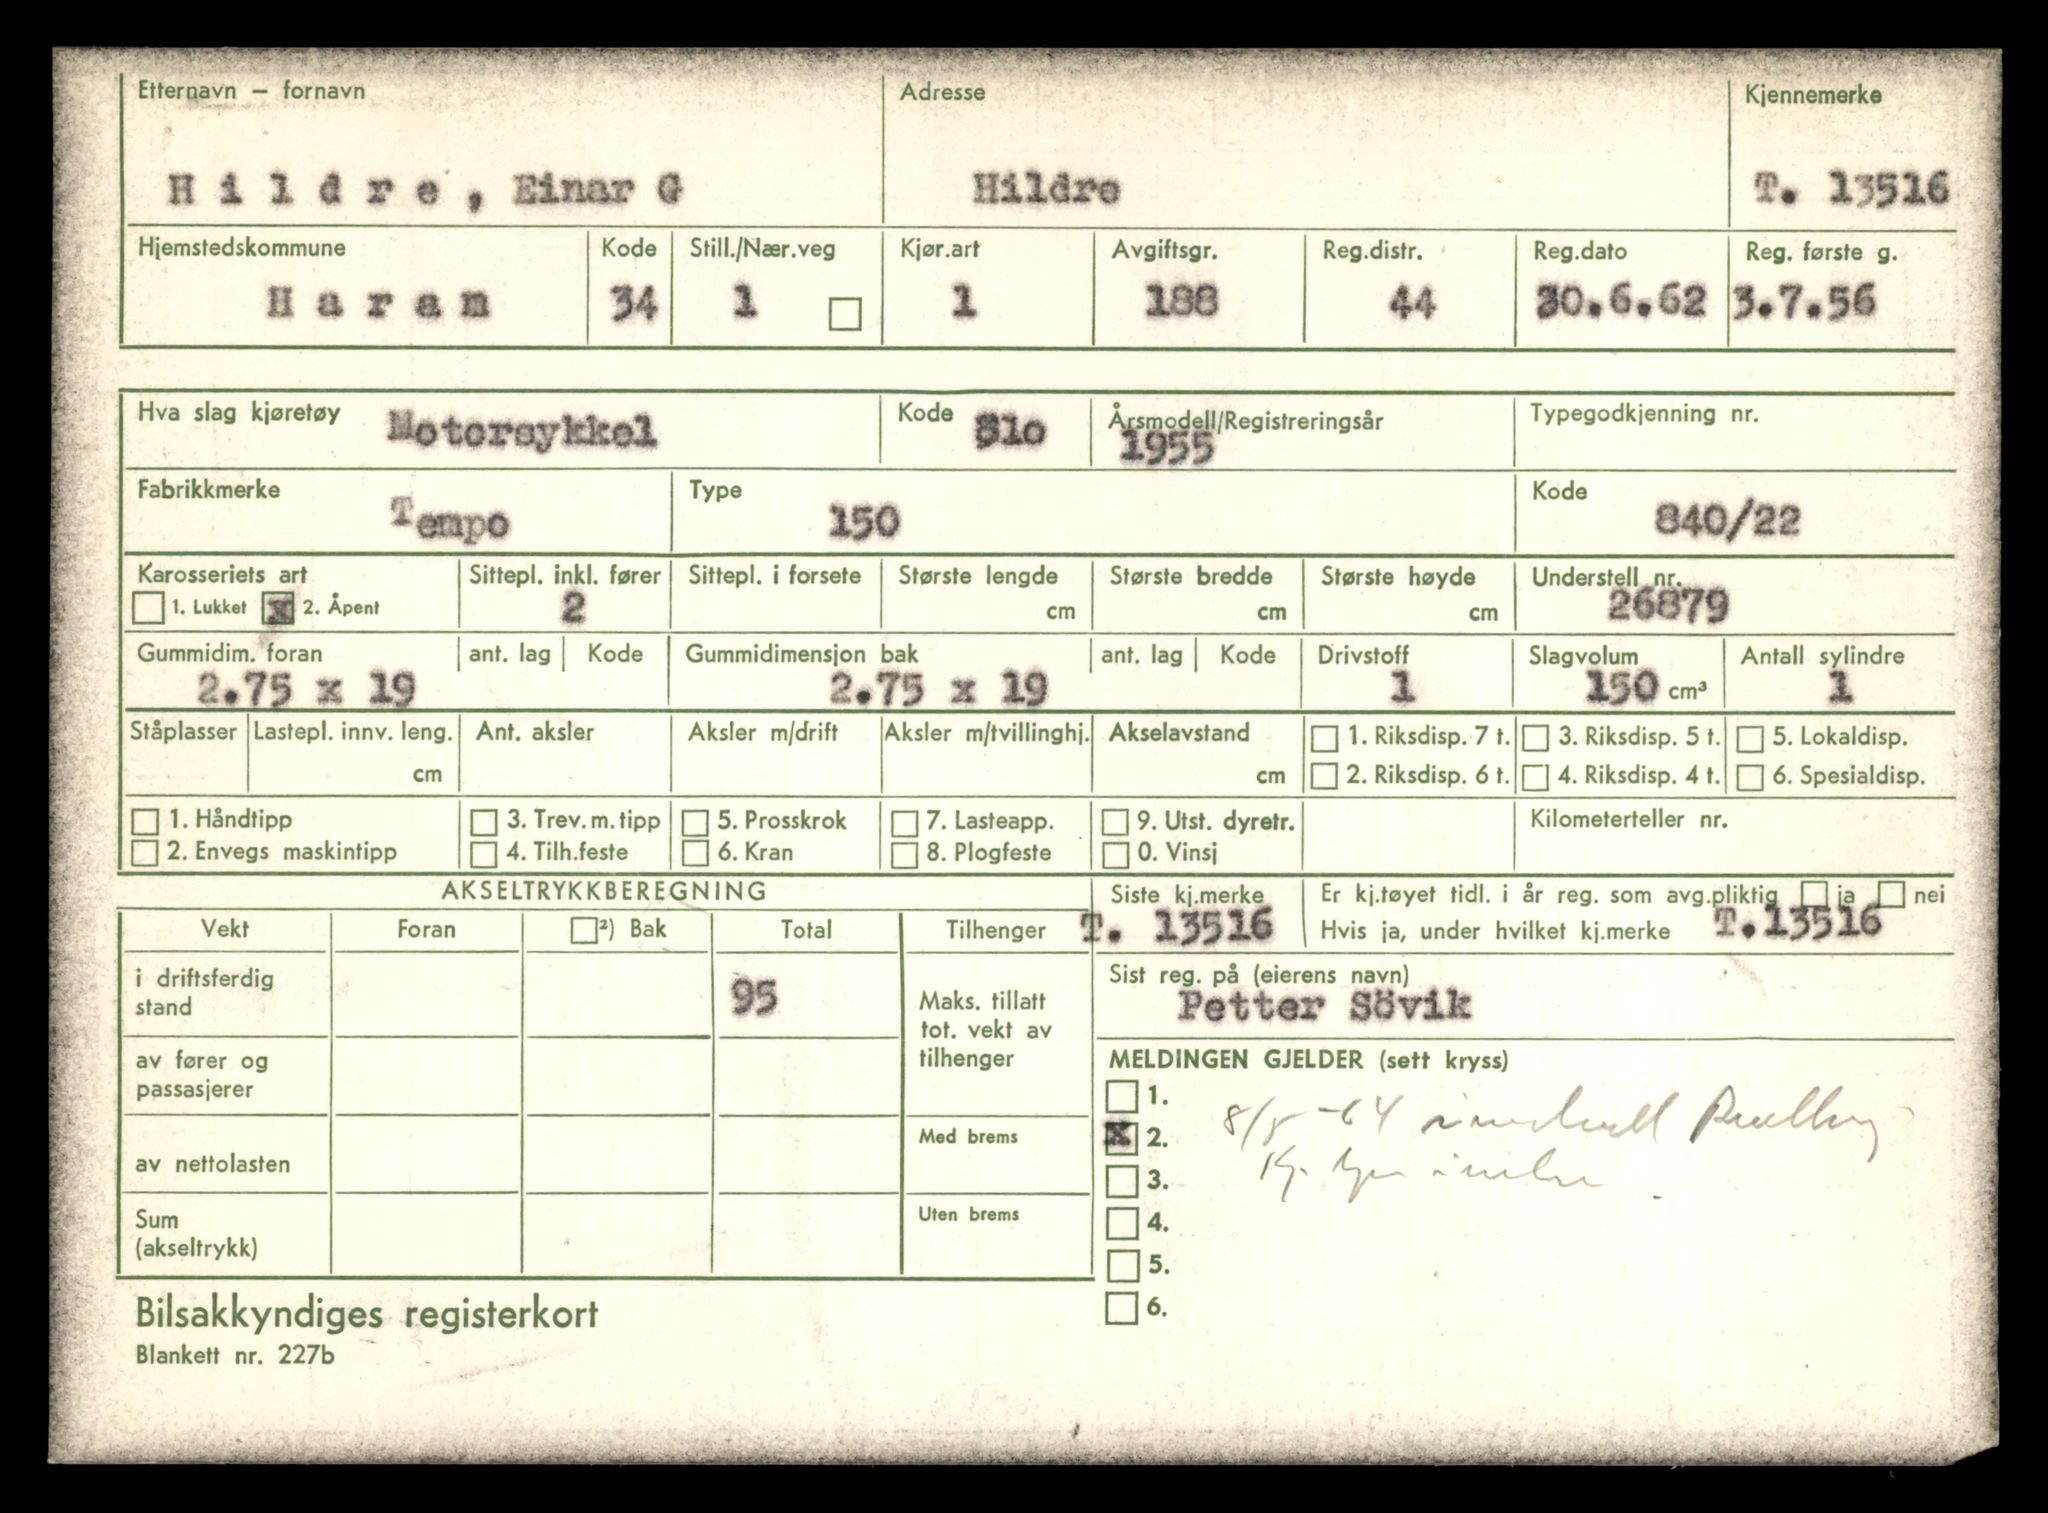 Etternavn – fornavn Adresse Kjennemerke
Hildre, Einar G Hildre T. 13516
Hjemstedskommune Kode Still./Nær.veg Kjør.art Avgiftsgr. Reg.distr. Reg.dato Reg. første g.
Haram 34 1 1 188 44 30.6.62 3.7.56
Hva slag kjøretøy Motorsykkel Kode 81o Årsmodell/Registreringsår Typegodkjenning nr.
1955
Fabrikkmerke Type Kode
Tempo 150 840/22
Karosseriets art Sittepl. inkl. fører Sittepl. i forsete Største lengde Største bredde Største høyde Understell nr.
1. Lukket x 2. Åpent 2 cm cm cm 26879
Gummidim. foran ant. lag Kode Gummidimensjon bak ant. lag Kode Drivstoff Slagvolum Antall sylindre
2.75 x 19 2.75 x 19 1 150 cm³ 1
Ståplasser Lastepl. innv. leng. Ant. aksler Aksler m/drift Aksler m/tvillinghj. Akselavstand 1. Riksdisp. 7 t. 3. Riksdisp. 5 t. 5. Lokaldisp.
cm cm 2. Riksdisp. 6 t. 4. Riksdisp. 4 t. 6. Spesialdisp.
1. Håndtipp 3. Trev. m. tipp 5. Prosskrok 7. Lasteapp. 9. Utst. dyretr. Kilometerteller nr.
2. Envegs maskintipp 4. Tilh.feste 6. Kran 8. Plogfeste 0. Vinsj
AKSELTRYKKBEREGNING Siste kj.merke Er kj.tøyet tidl. i år reg. som avg.pliktig ja nei
T. 13516 Hvis ja, under hvilket kj.merke T.13516
Vekt Foran ²) Bak Total Tilhenger
Sist reg. på (eierens navn)
Petter Sövik
i driftsferdig stand 95 Maks. tillatt tot. vekt av tilhenger
av fører og passasjerer
av nettolasten Med brems
Sum (akseltrykk) Uten brems
MELDINGEN GJELDER (sett kryss)
1.
x 2. 8/5-64
3. Kj.
4.
5.
6.
Bilsakkyndiges registerkort
Blankett nr. 227b